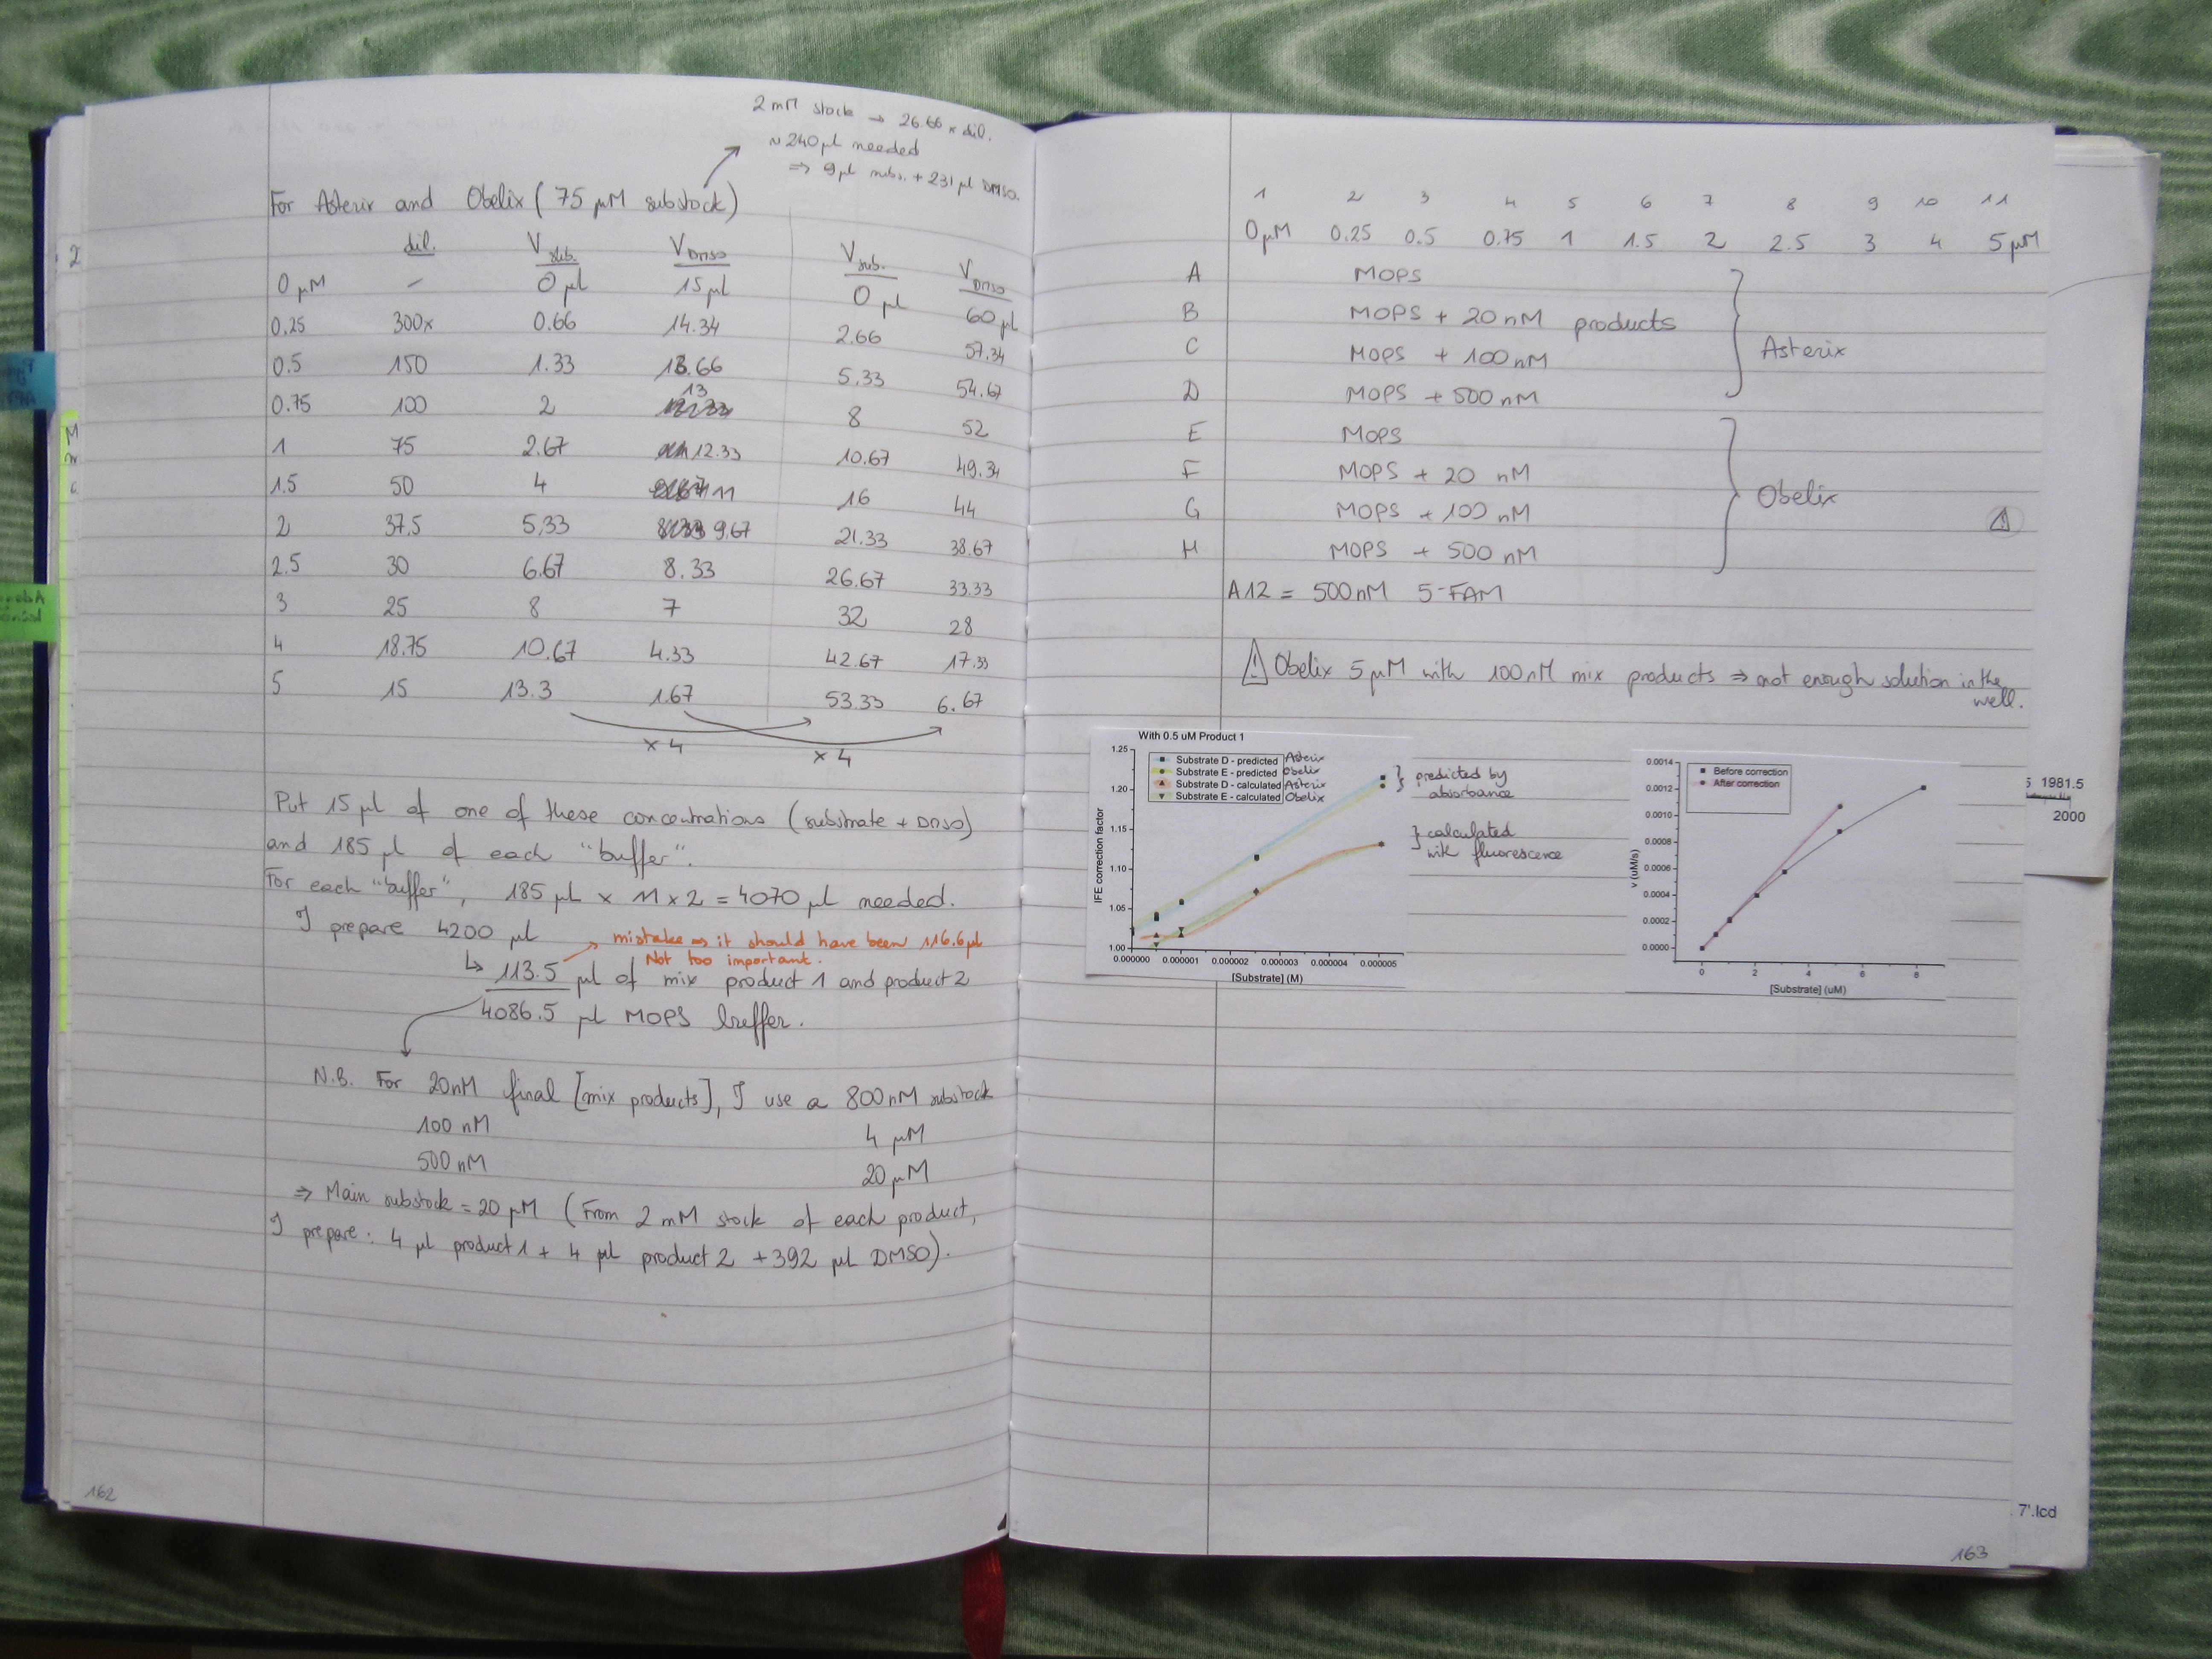 2 mM stock → 26.66 x dil.
~ 240 µl needed
⇒ 9 µl subs. + 231 µl DMSO.
For Asterix and Obelix (75 µM substock)
dil. V sub. V DMSO V sub. V DMSO
0 µM - 0 µl 15 µl 0 µl 60 µl
0.25 300x 0.66 14.34 2.66 57.34
0.5 150 1.33 13.66 5.33 54.67
0.75 100 2 13 8 52
1 75 2.67 12.33 10.67 49.34
1.5 50 4 11 16 44
2 37.5 5.33 9.67 21.33 38.67
2.5 30 6.67 8.33 26.67 33.33
3 25 8 7 32 28
4 18.75 10.67 4.33 42.67 17.33
5 15 13.3 1.67 53.33 6.67
x 4 x 4
Put 15 µl of one of these concentrations (substrate + DMSO)
and 185 µl of each "buffer".
For each "buffer", 185 µl x 11 x 2 = 4070 µl needed.
I prepare 4200 µl
mistake ⇒ it should have been 116.6 µl
Not too important.
↳ 113.5 µl of mix product 1 and product 2
4086.5 µl MOPS buffer.
N.B. For 20nM final [mix products], I use a 800nM substock
100 nM 4 µM
500 nM 20 µM
⇒ Main substock = 20 µM (From 2 mM stock of each product,
I prepare: 4 µl product 1 + 4 µl product 2 + 392 µl DMSO).
162
1 2 3 4 5 6 7 8 9 10 11
0 µM 0.25 0.5 0.75 1 1.5 2 2.5 3 4 5 µM
A MOPS
B MOPS + 20 nM products
C MOPS + 100 nM
Asterix
D MOPS + 500 nM
E MOPS
F MOPS + 20 nM
Obelix
G MOPS + 100 nM
H MOPS + 500 nM
A12 = 500nM 5-FAM
Obelix 5 µM with 100nM mix products ⇒ not enough solution in the
well.
With 0.5 uM Product 1
Substrate D - predicted Asterix
Substrate E - predicted Obelix
Substrate D - calculated Asterix
Substrate E - calculated Obelix
predicted by
absorbance
calculated
with fluorescence
IFE correction factor
1.25
1.20
1.15
1.10
1.05
1.00
0.000000 0.000001 0.000002 0.000003 0.000004 0.000005
[Substrate] (M)
Before correction
After correction
v (uM/s)
0.0014
0.0012
0.0010
0.0008
0.0006
0.0004
0.0002
0.0000
0 2 4 6 8
[Substrate] (uM)
1981.5
2000
7'.lcd
163